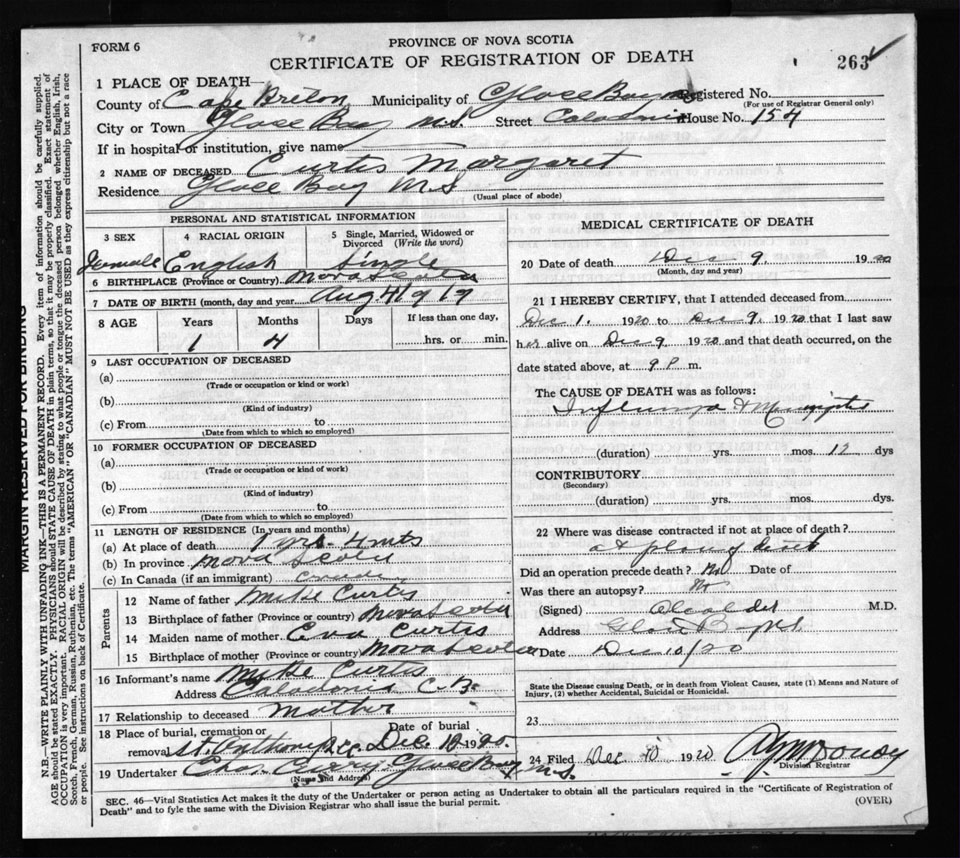 FORM 6
PROVINCE OF NOVA SCOTIA
CERTIFICATE OF REGISTRATION OF DEATH
263
1 PLACE OF DEATH—
County of Cape Breton Municipality of Glace Bay Registered No.
(For use of Registrar General only)
City or Town Glace Bay N.S. Street Caledonia House No. 154
If in hospital or institution, give name
2 NAME OF DECEASED Curtis Margaret
Residence Glace Bay N.S
(Usual place of abode)
PERSONAL AND STATISTICAL INFORMATION
3 SEX
4 RACIAL ORIGIN
5 Single, Married, Widowed or Divorced (Write the word)
Female English Single
6 BIRTHPLACE (Province or Country) Nova Scotia
7 DATE OF BIRTH (month, day and year) Aug 4 1919
8 AGE Years Months Days If less than one day,
1 4 hrs. or min.
9 LAST OCCUPATION OF DECEASED
(a)
(Trade or occupation or kind or work)
(b)
(Kind of industry)
(c) From to
(Date from which to which so employed)
10 FORMER OCCUPATION OF DECEASED
(a)
(Trade or occupation or kind of work)
(b)
(Kind of industry)
(c) From to
(Date from which to which so employed)
11 LENGTH OF RESIDENCE (In years and months)
(a) At place of death 1 yrs. 4 mts
(b) In province Nova Scotia
(c) In Canada (if an immigrant)
Parents
12 Name of father Mike Curtis
13 Birthplace of father (Province or country) Nova Scotia
14 Maiden name of mother Eva Curtis
15 Birthplace of mother (Province or country) Nova Scotia
16 Informant's name Mike Curtis
Address Caledonia C.B.
17 Relationship to deceased Mother
18 Place of burial, cremation or removal Date of burial
St. Anthony Dec. 10 1920.
19 Undertaker Chas. Curry Glace Bay N.S.
(Name and Address)
MEDICAL CERTIFICATE OF DEATH
20 Date of death Dec 9 1920
(Month, day and year)
21 I HEREBY CERTIFY, that I attended deceased from
Dec 1. 1920 to Dec 9. 1920 that I last saw
her alive on Dec 9 1920 and that death occurred, on the
date stated above, at 9 P m.
The CAUSE OF DEATH was as follows:
Influenza & Meningitis
(duration) yrs. mos. 12 dys
CONTRIBUTORY
(Secondary)
(duration) yrs. mos. dys.
22 Where was disease contracted if not at place of death?
at place of death
Did an operation precede death? No Date of
Was there an autopsy?
(Signed) M.D.
Address Glace Bay N.S.
Date Dec 10/20
State the Disease causing Death, or in death from Violent Causes, state (1) Means and Nature of
Injury, (2) whether Accidental, Suicidal or Homicidal.
23
24 Filed Dec 10 1920
Division Registrar
SEC. 46—Vital Statistics Act makes it the duty of the Undertaker or person acting as Undertaker to obtain all the particulars required in the "Certificate of Registration of
Death" and to fyle the same with the Division Registrar who shall issue the burial permit.
(OVER)
MARGIN RESERVED FOR BINDING
N.B.—WRITE PLAINLY WITH UNFADING INK—THIS IS A PERMANENT RECORD. Every item of information should be carefully supplied.
AGE should be stated EXACTLY. PHYSICIANS should STATE CAUSE OF DEATH in plain terms, so that it may be properly classified. Exact statement of
OCCUPATION is very important. RACIAL ORIGIN will be described by stating to what people or tongue the deceased person belonged whether English, Irish,
Scotch, French, German, Russian, Ruthenian, etc. The terms "AMERICAN" OR "CANADIAN" MUST NOT BE USED as they express citizenship but not a race
or people. See instructions on back of Certificate.